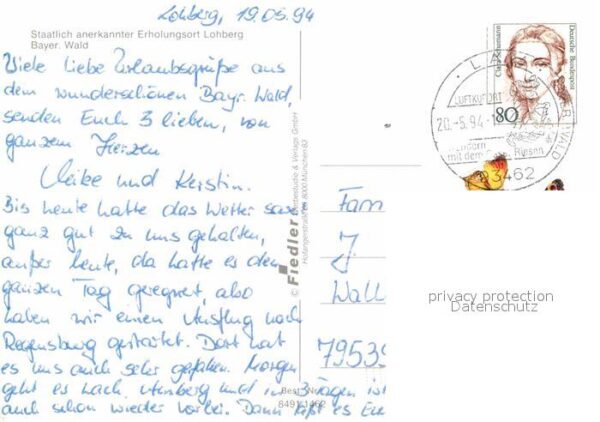 Lohberg, 19.05.94
Staatlich anerkannter Erholungsort Lohberg
Bayer. Wald
Viele liebe Urlaubsgrüße aus
dem wunderschönen Bayr. Wald,
senden Euch 3 lieben, von
ganzem Herzen
Heike und Kerstin.
Bis heute hatte das Wetter
ganz gut zu uns gehalten,
außer heute, da hatte es den
ganzen Tag geregnet, also
haben wir einen Ausflug nach
Regensburg gestartet. Dort hat
es uns auch sehr gefallen. Morgen
geht es nach und in 3 Tagen ist
auch schon wieder vorbei. Dann heißt es
© Fiedler
8000 München 83
Best. Nr.
8491/1462
Clara Schumann
Deutsche Bundespost
80
LUFTKURORT
20.-5.94
Wandern
mit dem Riesen
93462
Fam
J
Wall
79539
privacy protection
Datenschutz